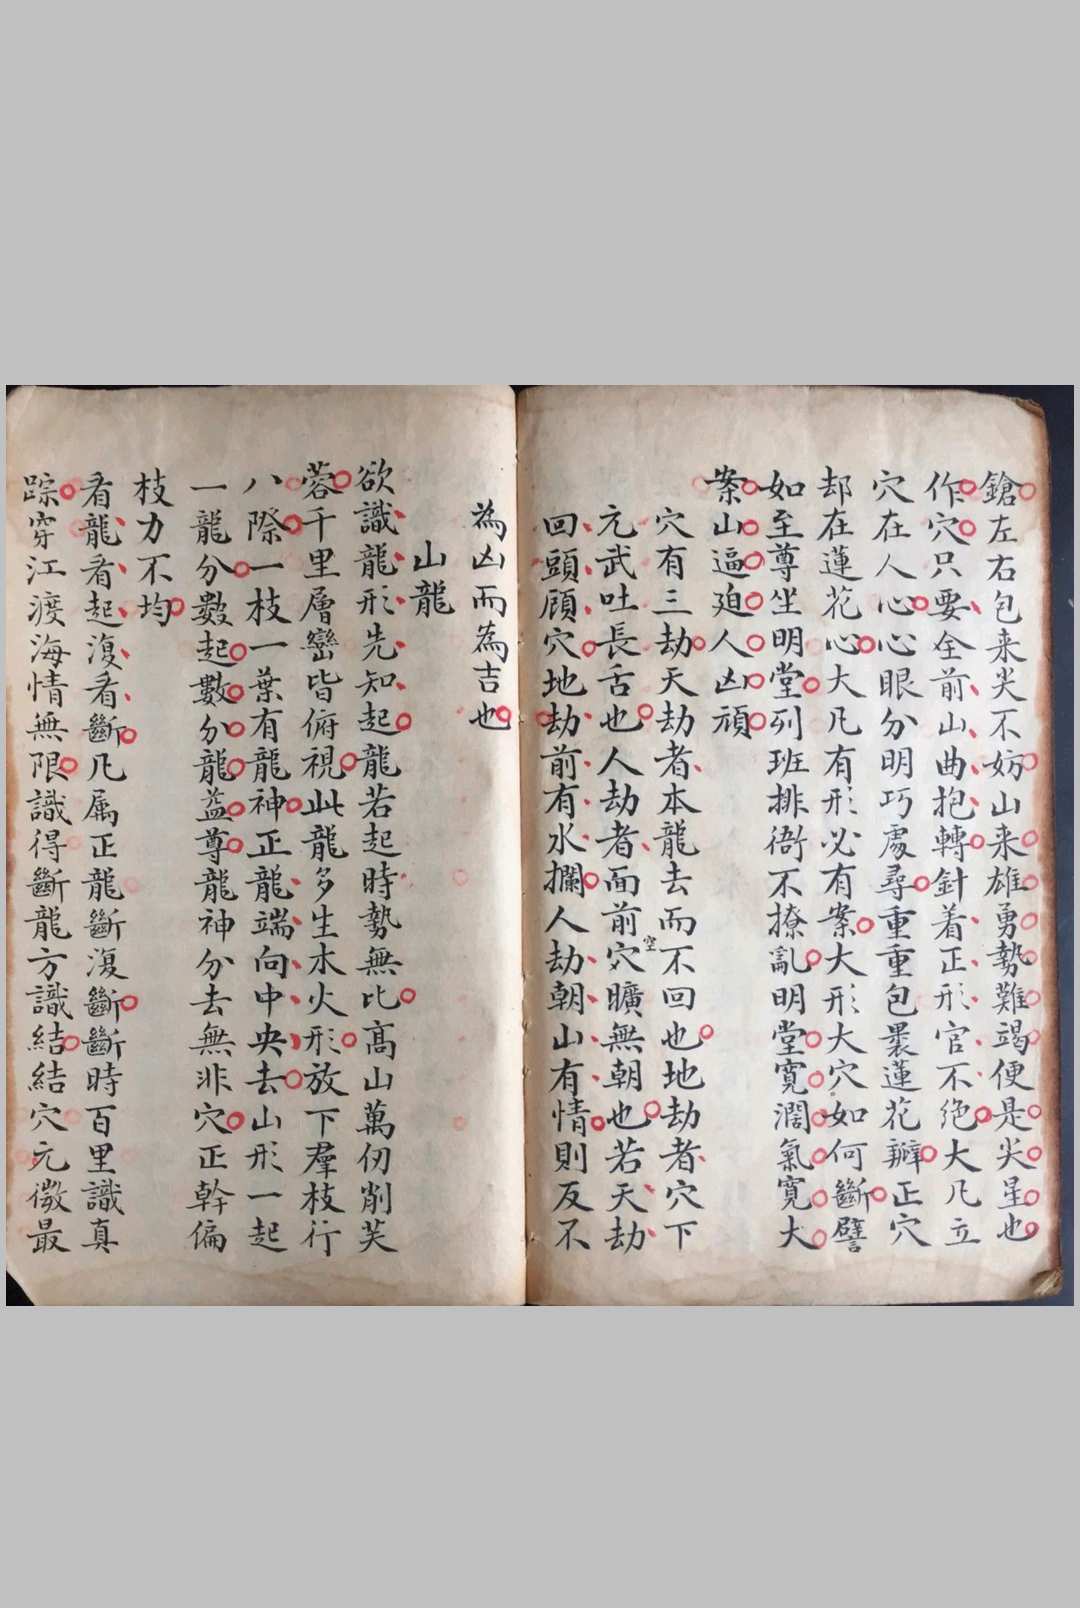 鎗左右包来尖不妨山来雄勇勢難竭便是尖星也
作穴只要全前山曲抱轉針着正形官不絶大凡立
穴在人心心眼分明巧處尋重重包裹蓮花瓣正穴
却在蓮花心大凡有形必有案大形大穴如何斷譬
如至尊坐明堂列班排衙不撩亂明堂寛濶氣寛大
案山逼廹人凶頑
穴有三劫天劫者本龍去而不回也地劫者穴下
元武吐長舌也人劫者面前穴空曠無朝也若天劫
回頭顧穴地劫前有水攔人劫朝山有情則反不
為凶而為吉也
山龍
欲識龍形先知起龍若起時勢無比高山萬仞削芙
蓉千里層巒皆俯視此龍多生木火形放下羣枝行
八際一枝一葉有龍神正龍端向中央去山形一起
一龍分數起數分龍益尊龍神分去無非穴正幹偏
枝力不均
看龍看起復看斷凡属正龍斷復斷斷時百里識真
踪穿江渡海情無限識得斷龍方識結結穴元微最